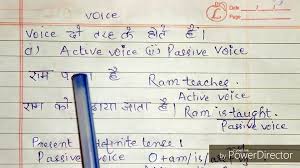 Voice
Voice दो तरह के होते हैं।
(i) Active voice (ii) Passive Voice
राम है Ram teaches.
Active voice
राम को पढ़ाया जाता है। Ram is taught.
Passive voice
Present tense:
Passive voice O+am/is/a
by PowerDirector